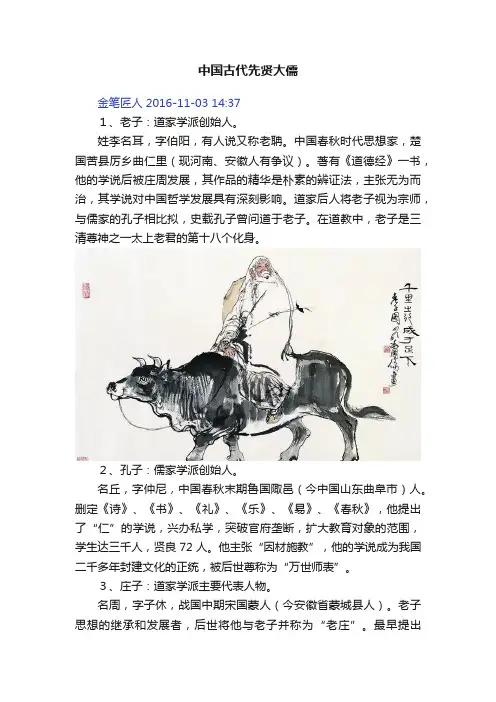 中国古代先贤大儒
金笔匠人 2016-11-03 14:37
1、老子：道家学派创始人。
姓李名耳，字伯阳，有人说又称老聃。中国春秋时代思想家，楚
国苦县厉乡曲仁里（现河南、安徽人有争议）。著有《道德经》一书，
他的学说后被庄周发展，其作品的精华是朴素的辨证法，主张无为而
治，其学说对中国哲学发展具有深刻影响。道家后人将老子视为宗师，
与儒家的孔子相比拟，史载孔子曾问道于老子。在道教中，老子是三
清尊神之一太上老君的第十八个化身。
千里之行成于足下
2、孔子：儒家学派创始人。
名丘，字仲尼，中国春秋末期鲁国陬邑（今中国山东曲阜市）人。
删定《诗》、《书》、《礼》、《乐》、《易》、《春秋》，他提出
了“仁”的学说，兴办私学，突破官府垄断，扩大教育对象的范围，
学生达三千人，贤良 72 人。他主张“因材施教”，他的学说成为我国
二千多年封建文化的正统，被后世尊称为“万世师表”。
3、庄子：道家学派主要代表人物。
名周，字子休，战国中期宋国蒙人（今安徽省蒙城县人）。老子
思想的继承和发展者，后世将他与老子并称为“老庄”。最早提出